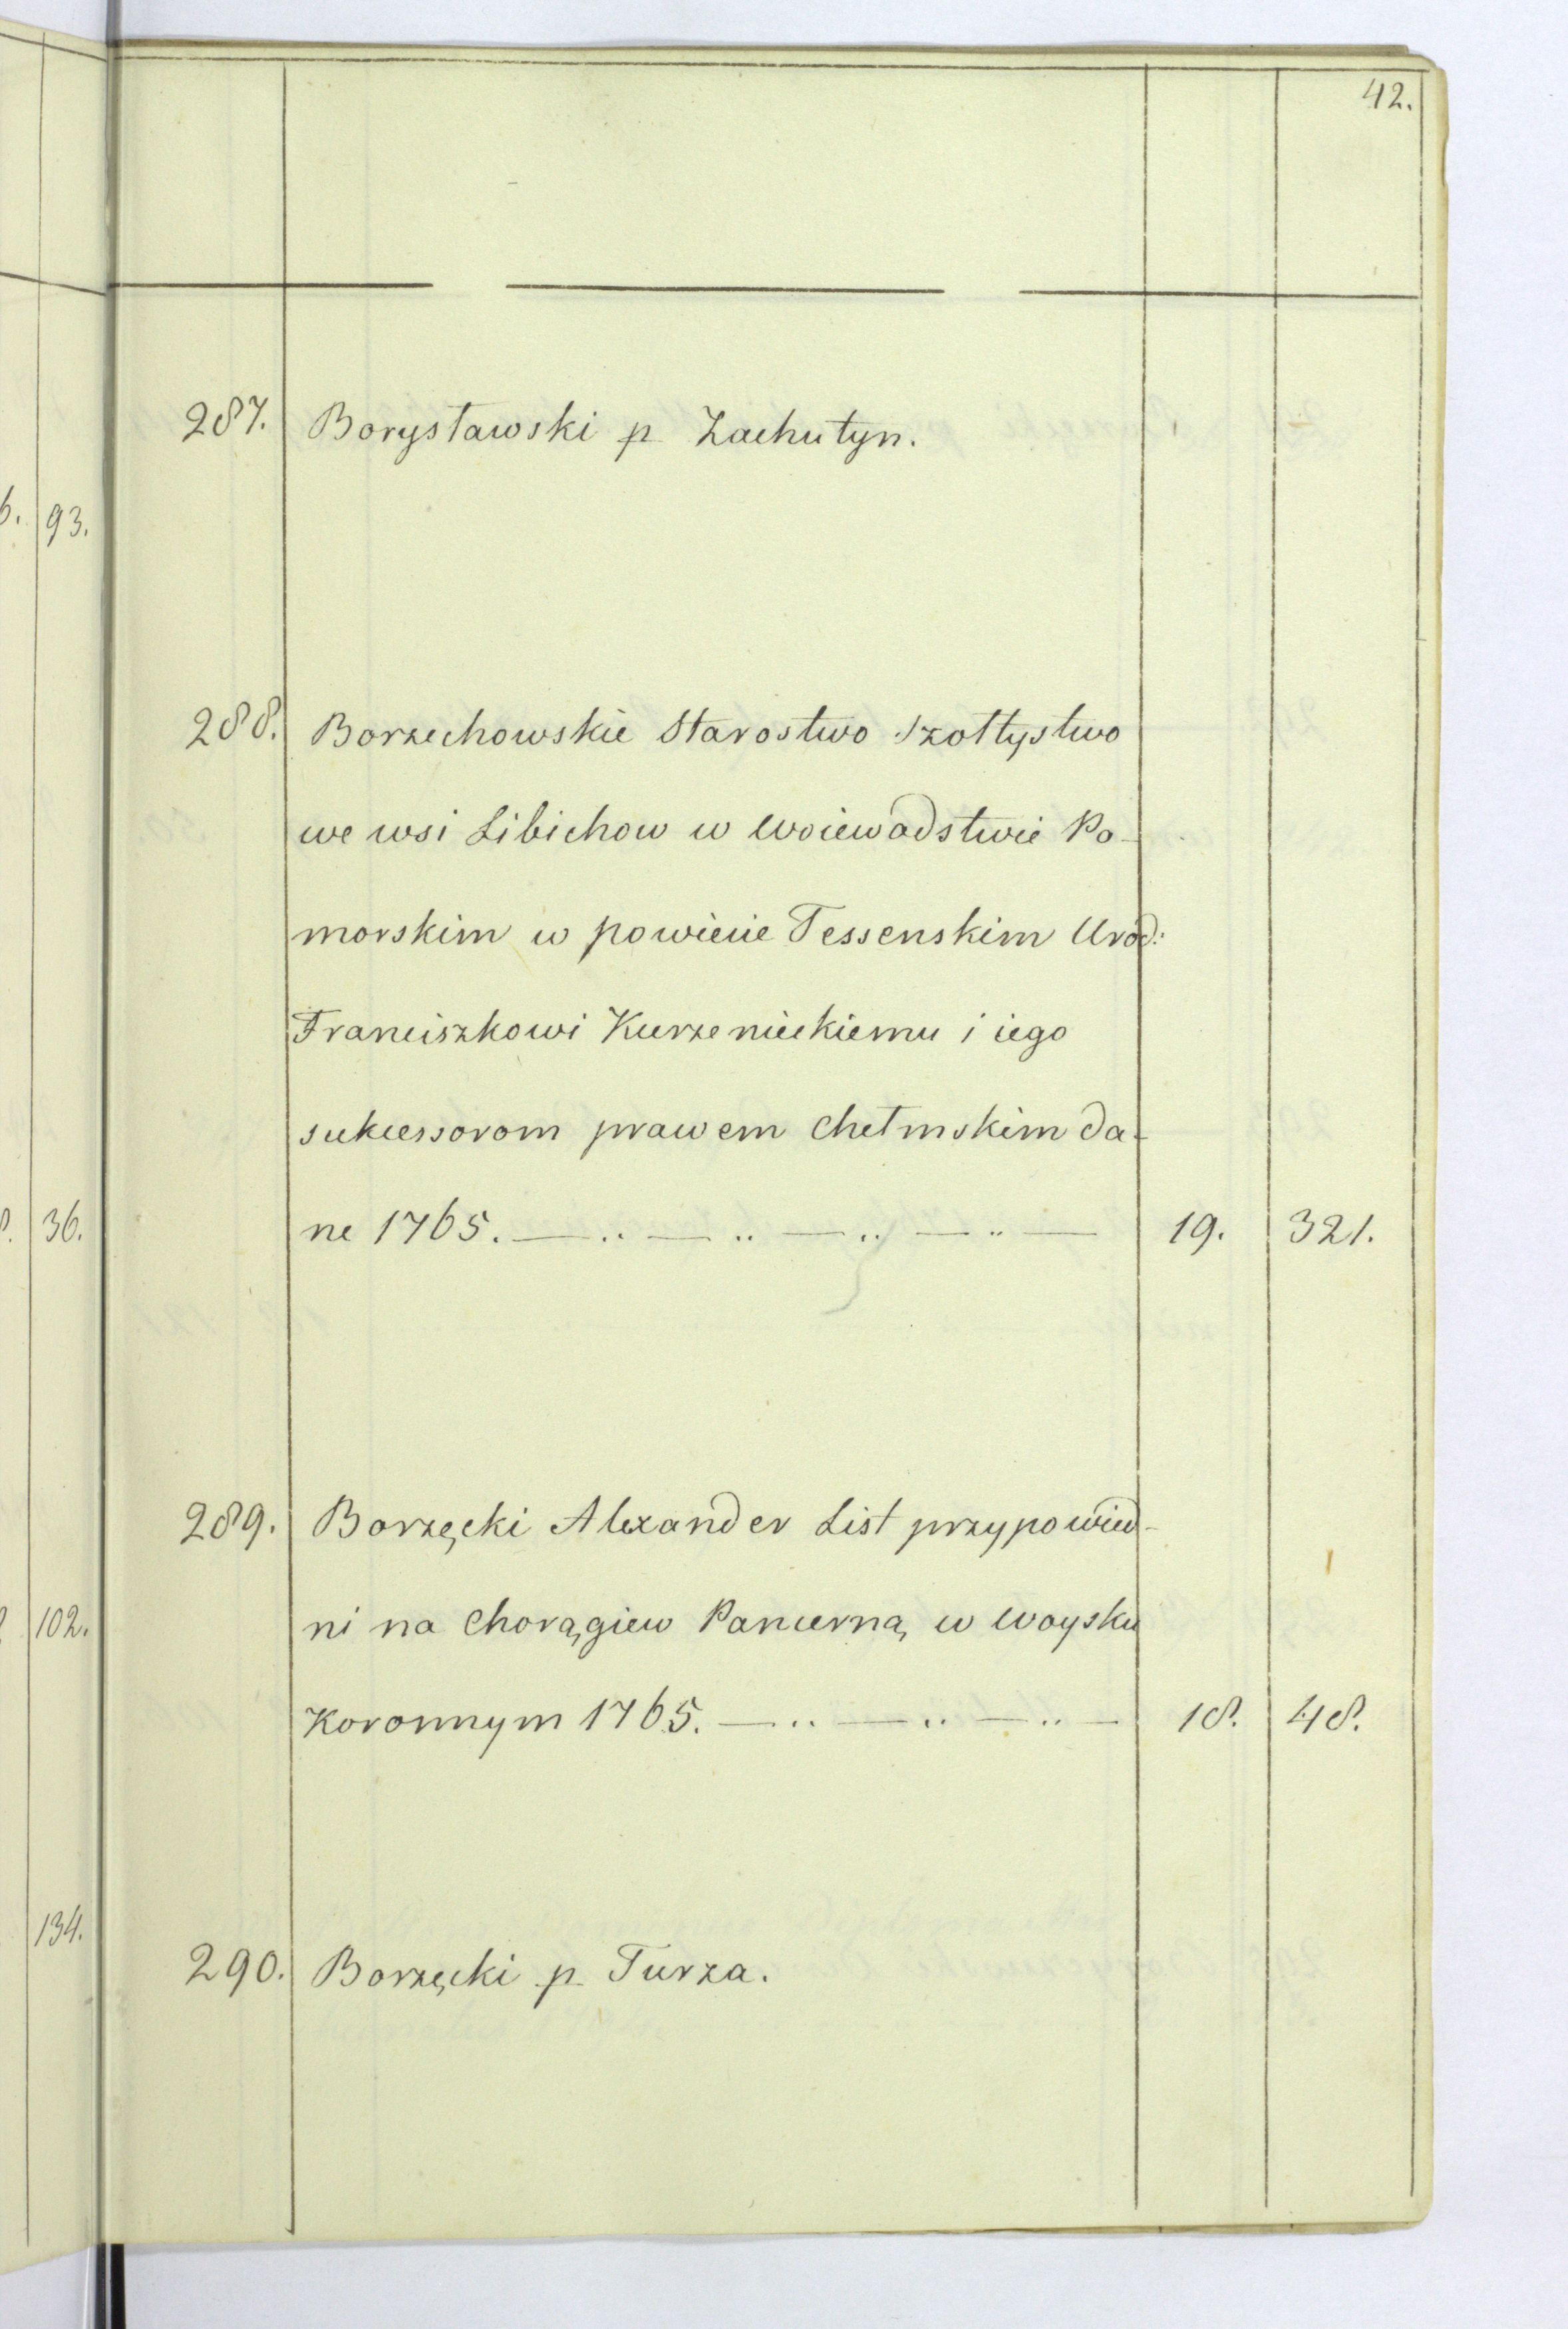 42.
287. Borysławski p Zachutyn.
6. 93.
288. Borzechowskie Starostwo Szołtystwo
we wsi Libichow w Woiewodstwie Po-
morskim w powiecie Tessenskim Urod:
Franciszkowi Kurzenieckiemu i iego
sukcessorom prawem Chełmskim da-
36. ne 1765. — .. — .. — .. — .. — 19. 321.
289. Borzęcki Alexander List przypowied-
102. ni na Chorągiew Pancerną w Woysku
Koronnym 1765. — .. — .. — .. — 18. 48.
134.
290. Borzęcki p Turza.